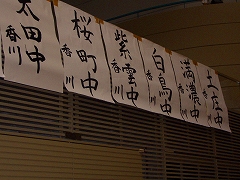 土庄中
香川
満濃中
香川
白鳥中
香川
紫雲中
香川
桜町中
香川
太田中
香川